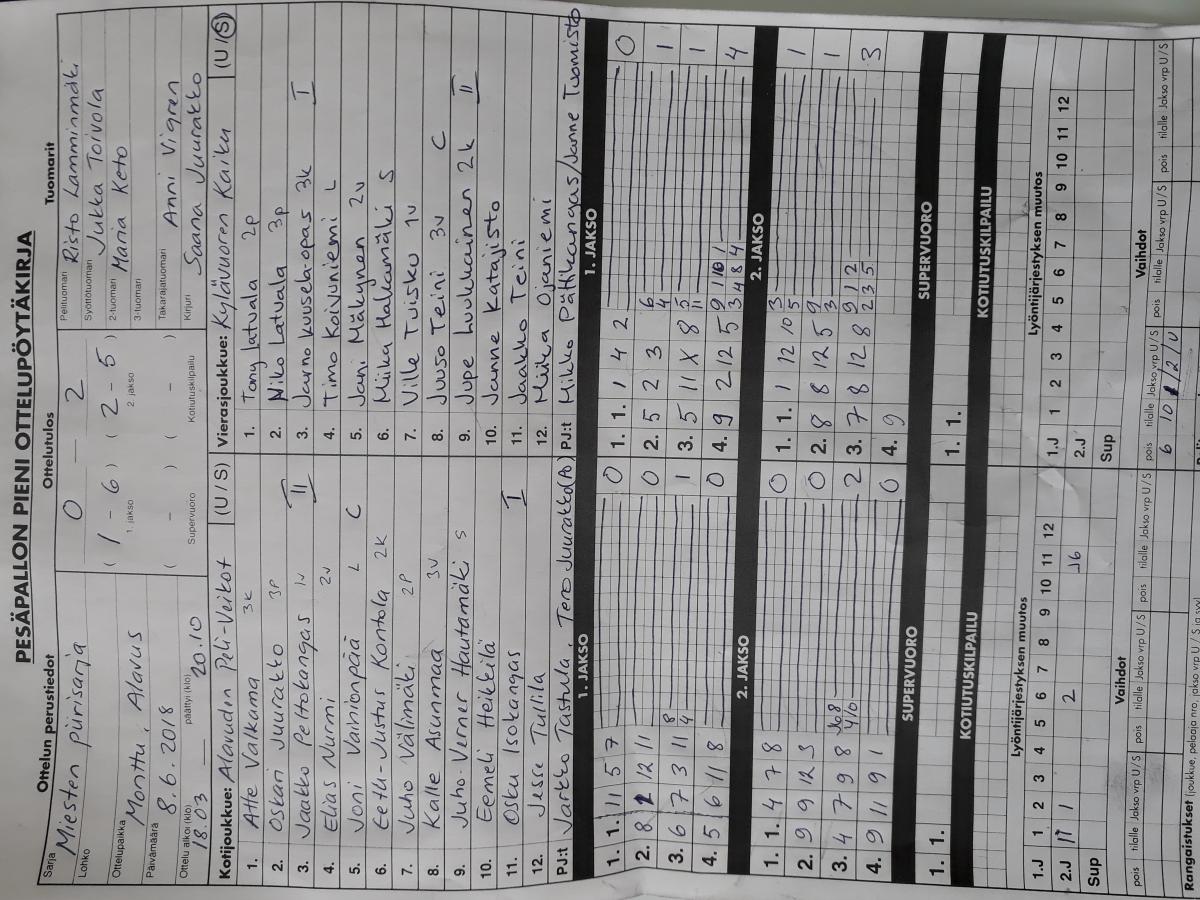 PESÄPALLON PIENI OTTELUPÖYTÄKIRJA
Ottelun perustiedot Ottelutulos Tuomarit
Sarja
Miesten piirisarja
Lohko
Ottelupaikka
Monttu, Alavus
Päivämäärä
8.6.2018
Ottelu alkoi (klo) päättyi (klo)
18.03 — 20.10
0 — 2
( 1 - 6 ) ( 2 - 5 )
1. jakso 2. jakso
( - ) ( - )
Supervuoro Kotiutuskilpailu
Pelituomari Risto Lamminmäki
Syöttötuomari Jukka Toivola
2-tuomari Maria Keto
3-tuomari
Takarajatuomari Anni Vigren
Kirjuri Saana Juurakko
Kotijoukkue: Alavuden Peli-Veikot (U / S)
1. Atte Valkama 3k
2. Oskari Juurakko 3p
3. Jaakko Peltokangas 1v II
4. Elias Nurmi 2v
5. Joni Vainionpää L C
6. Eetu-Justus Kontola 2k
7. Juho Välimäki 2p
8. Kalle Asunmaa 3v
9. Juho-Verner Hautamäki S
10. Eemeli Heikkilä
11. Osku Isokangas I
12. Jesse Tullila
PJ:t Jarkko Tastula, Tero Juurakko(PO)
Vierasjoukkue: Kylävuoren Kaiku (U / S)
1. Tony Latvala 2p
2. Niko Latvala 3p
3. Jarno Kuusela-opas 3k I
4. Timo Koivuniemi L
5. Jani Mäkynen 2v
6. Miika Hakamäki S
7. Ville Tuisko 1v
8. Juuso Teini 3v C
9. Jupe Luukkainen 2k II
10. Janne Katajisto
11. Jaakko Teini
12. Miika Ojaniemi
PJ:t Mikko Pältikangas/Janne Tuomisto
1. JAKSO
1. 1. 11 5 7 0
2. 8 1 12 11 0
3. 6 7 3 11 8 4 1
4. 5 6 11 8 0
2. JAKSO
1. 1. 4 7 8 0
2. 9 9 12 3 0
3. 4 7 9 8 2
4. 9 11 9 1 0
SUPERVUORO
1. 1.
KOTIUTUSKILPAILU
1. JAKSO
1. 1. 1 4 2 0
2. 5 2 3 6 4 1
3. 5 11 X 8 5 11 1
4. 9 2 12 5 9 10 1 3 4 8 4 4
2. JAKSO
1. 1. 1 12 10 3 5 1
2. 8 8 12 5 9 3 1
3. 7 8 12 8 9 12 2 3 5 3
4. 9
SUPERVUORO
1. 1.
KOTIUTUSKILPAILU
Lyöntijärjestyksen muutos
1.J 1 2 3 4 5 6 7 8 9 10 11 12
2.J 11 1 2 J6
Sup
Vaihdot
pois tilalle Jakso vrp U / S pois tilalle Jakso vrp U / S pois tilalle Jakso vrp U / S
Lyöntijärjestyksen muutos
1.J 1 2 3 4 5 6 7 8 9 10 11 12
2.J
Sup
Vaihdot
pois tilalle Jakso vrp U / S pois tilalle Jakso vrp U / S pois tilalle Jakso vrp U / S
6 10 1 2 U
Rangaistukset (joukkue, pelaaja nro, jakso vrp U / S ja syy)